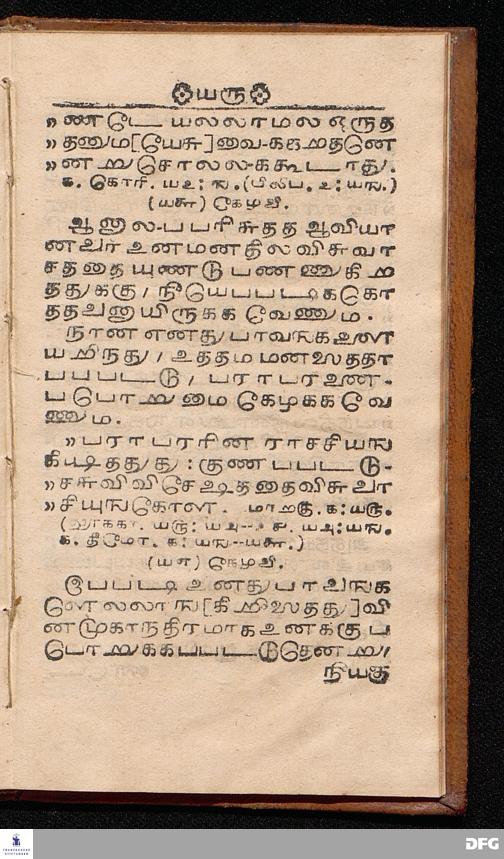 யரு
ணடே யலலாமல ஒருத
தனும[யேசு]வை-கரூறதனெ
னறுசொலல-ககூடாது.
க. கொரி. யஉ: ங. (பிலிப. உ: யங.)
(யசு) கேழவி.
ஆனால-பபரிசுதத ஆவியா
னவர உனமனதிலவிசுவா
சததையுணடு பணணுகிற
ததுககு, நீயெபபடிககொ
ததவனாயிருகக வேணும.
நான எனதுபாவஙகஉணர
யறிநது, உததமமனஸததா
பபபடடு, பராபரஉண-
பபொறுமை கேழககவே
ணும.
பராபரரின ராசசியங
கிடிததது: குணபபடடு-
சுசுவிவிசேஷததைவிசுவா
சியுஙகோள. மாறகு. க: யரு.
(லூககா. யரு: யஅ-- ச. யஅ: யங.
க. தீமோ. க: யங--யசு.)
(யஎ) கேழவி.
யேபபடி உனதுபாவஙக
ளெலலாங[கிறிஸதது]வி
னமுகாநதிரமாக உனககுப
பொறுககபபடடுதெனறு,
நியகு
DFG